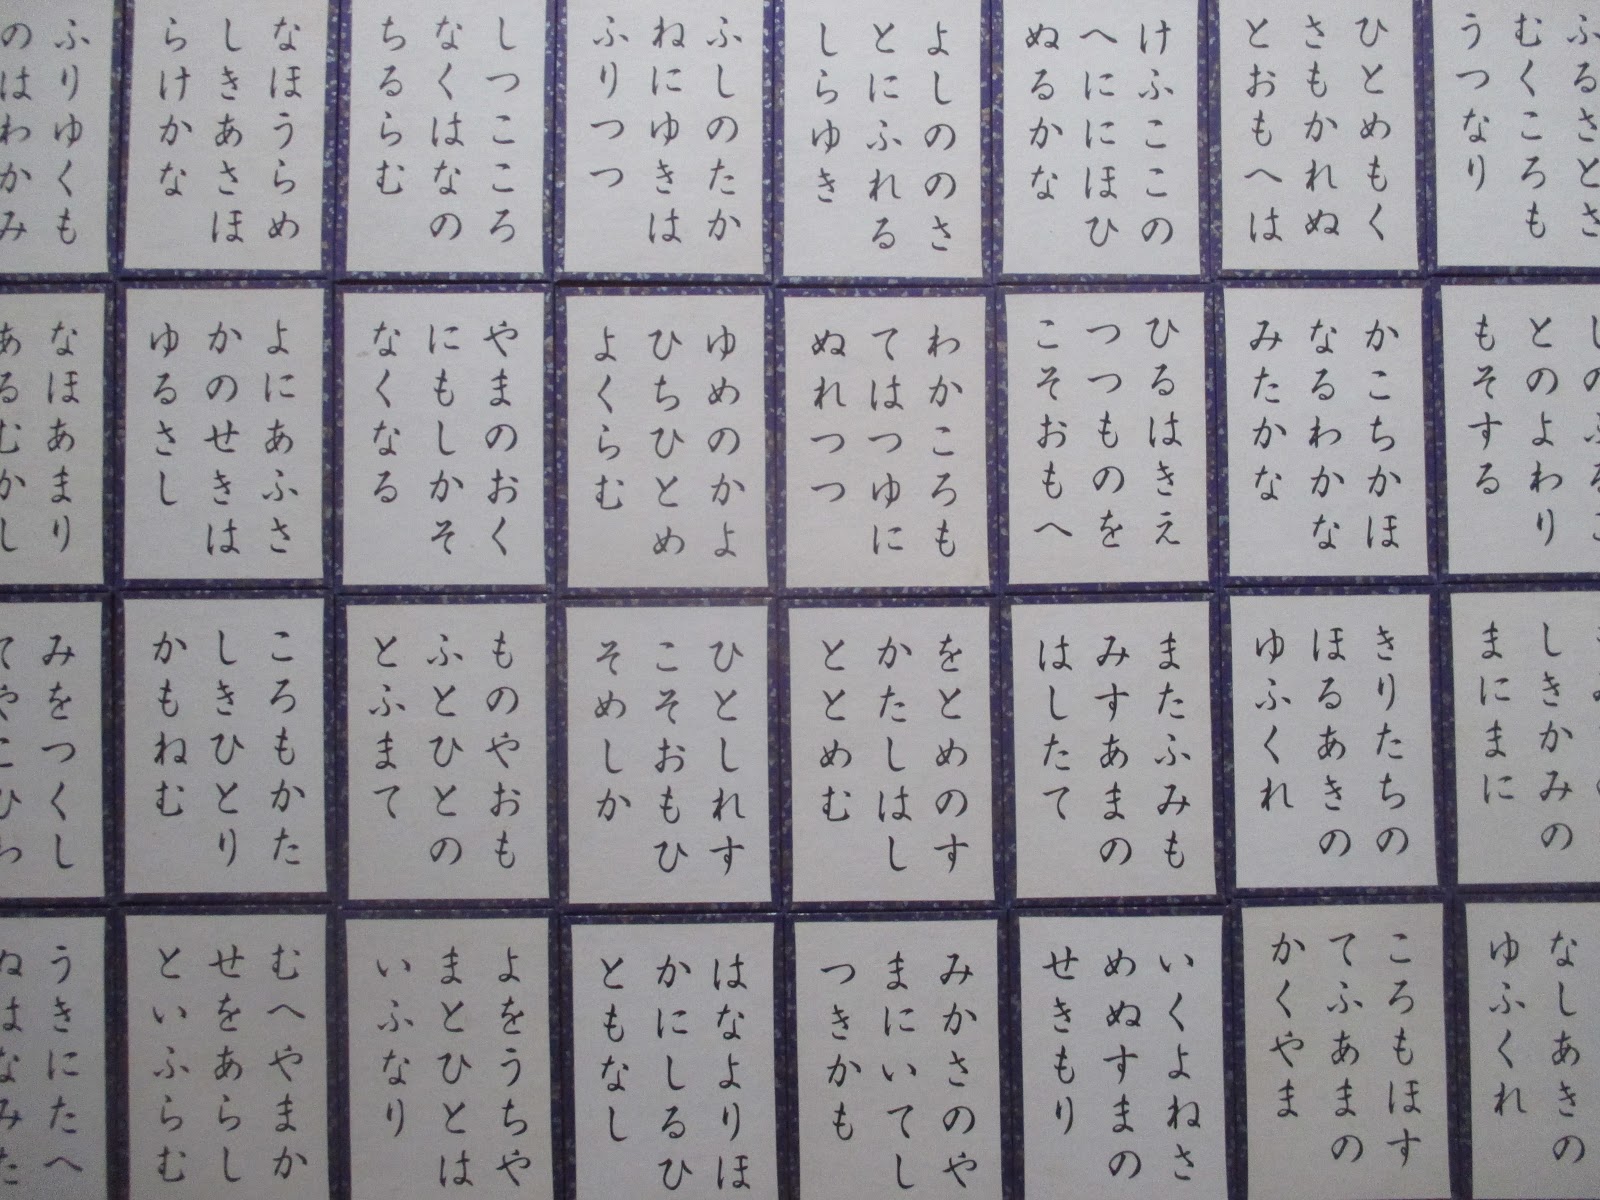 ふるさとさ
むくころも
うつなり
ひとめもく
さもかれぬ
とおもへは
けふここの
へににほひ
ぬるかな
よしののさ
とにふれる
しらゆき
ふしのたか
ねにゆきは
ふりつつ
しつこころ
なくはなの
ちるらむ
なほうらめ
しきあさほ
らけかな
ふりゆくも
のはわかみ
しのふるこ
とのよわり
もそする
かこちかほ
なるわかな
みたかな
ひるはきえ
つつものを
こそおもへ
わかころも
てはつゆに
ぬれつつ
ゆめのかよ
ひちひとめ
よくらむ
やまのおく
にもしかそ
なくなる
よにあふさ
かのせきは
ゆるさし
なほあまり
あるむかし
しきかみの
まにまに
きりたちの
ほるあきの
ゆふくれ
またふみも
みすあまの
はしたて
をとめのす
かたしはし
ととめむ
ひとしれす
こそおもひ
そめしか
ものやおも
ふとひとの
とふまて
ころもかた
しきひとり
かもねむ
みをつくし
てやこひわ
なしあきの
ゆふくれ
ころもほす
てふあまの
かくやま
いくよねさ
めぬすまの
せきもり
みかさのや
まにいてし
つきかも
はなよりほ
かにしるひ
ともなし
よをうちや
まとひとは
いふなり
むへやまか
せをあらし
といふらむ
うきにたへ
ぬはなみた